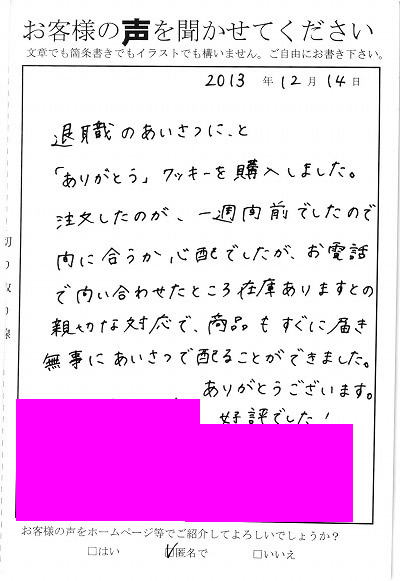 お客様の声を聞かせてください
文章でも箇条書きでもイラストでも構いません。ご自由にお書き下さい。
2013 年 12 月 14 日
退職のあいさつに、と
「ありがとう」クッキーを購入しました。
注文したのが、一週間前でしたので
間に合うか心配でしたが、お電話
で問い合わせたところ在庫ありますとの
親切な対応で、商品もすぐに届き
無事にあいさつで配ることができました。
ありがとうございます。
好評でした!
切り取り線
お客様の声をホームページ等でご紹介してよろしいでしょうか?
□はい ☑匿名で □いいえ